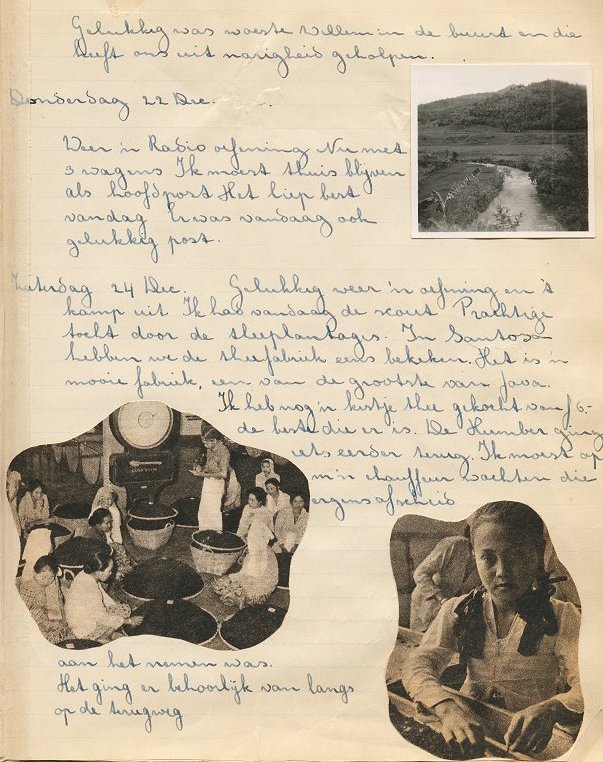 Gelukkig was woeste Willem in de buurt en die
heeft ons uit narigheid geholpen.
Donderdag 22 Dec.
Weer 'n Radio oefening Nu met
3 wagens Ik moest thuis blijven
als hoofdpost Het liep best
vandaag Er was vandaag ook
gelukkig post.
Zaterdag 24 Dec. Gelukkig weer 'n oefening en 't
kamp uit Ik had vandaag de scout Prachtige
tocht door de theeplantages. In Santosa
hebben we de theefabriek eens bekeken. Het is 'n
mooie fabriek, een van de grootste van Java.
Ik heb nog 'n kistje thee gekocht van f 6,-
de beste die er is. De Humber ging
iets eerder terug. Ik moest op
m'n chauffeur wachten die
ergens afscheid
aan het nemen was.
Het ging er behoorlijk van langs
op de terugweg